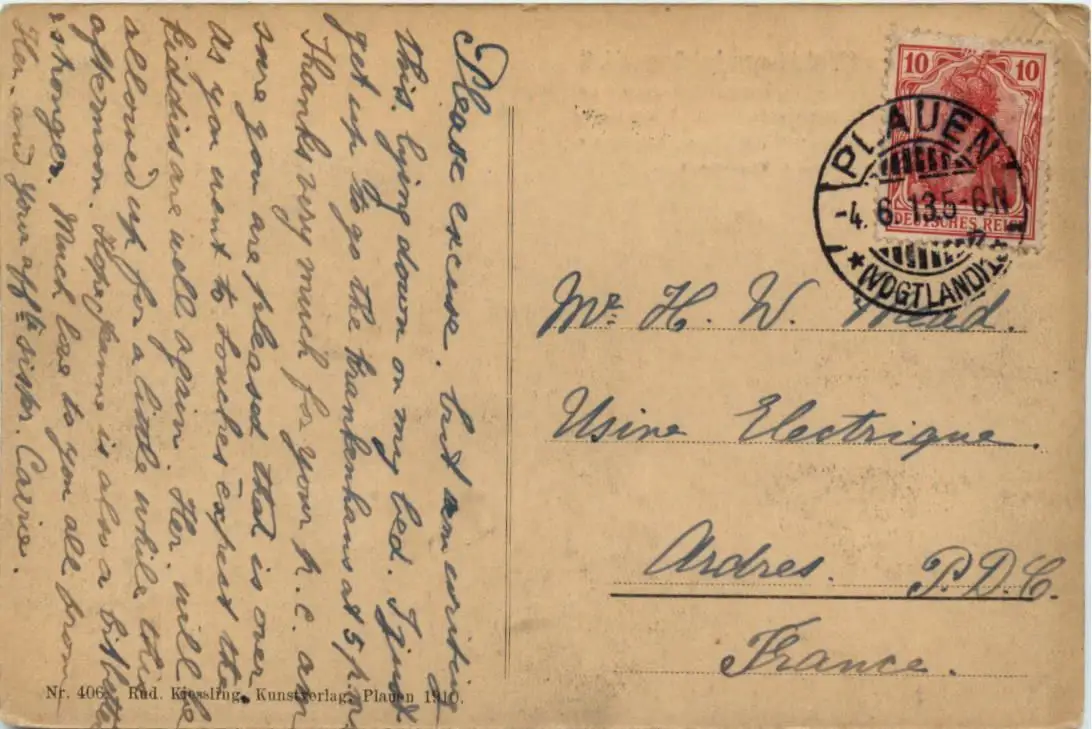 Please excuse, but am writing
this, lying down on my bed. I just
get up to go the Krankenhaus at 5 p.m.
Thanks very much for your p.c. am
sure you are pleased that is over
as you want to Louches expect the
kiddies are well again. Her. will be
allowed up for a little while this
afternoon. Hope Jeanne is also a bit better
& stronger. Much love to you all from
Her. and your afft sister. Carrie.
10 10
DEUTSCHES REICH
PLAUEN
-4.6.13.5-6N
* (VOGTLAND)
Mr. H. W. Mead.
Usine Electrique.
Ardres. P.D.C.
France.
Nr. 406. Rud. Kiessling, Kunstverlag, Plauen 1910.